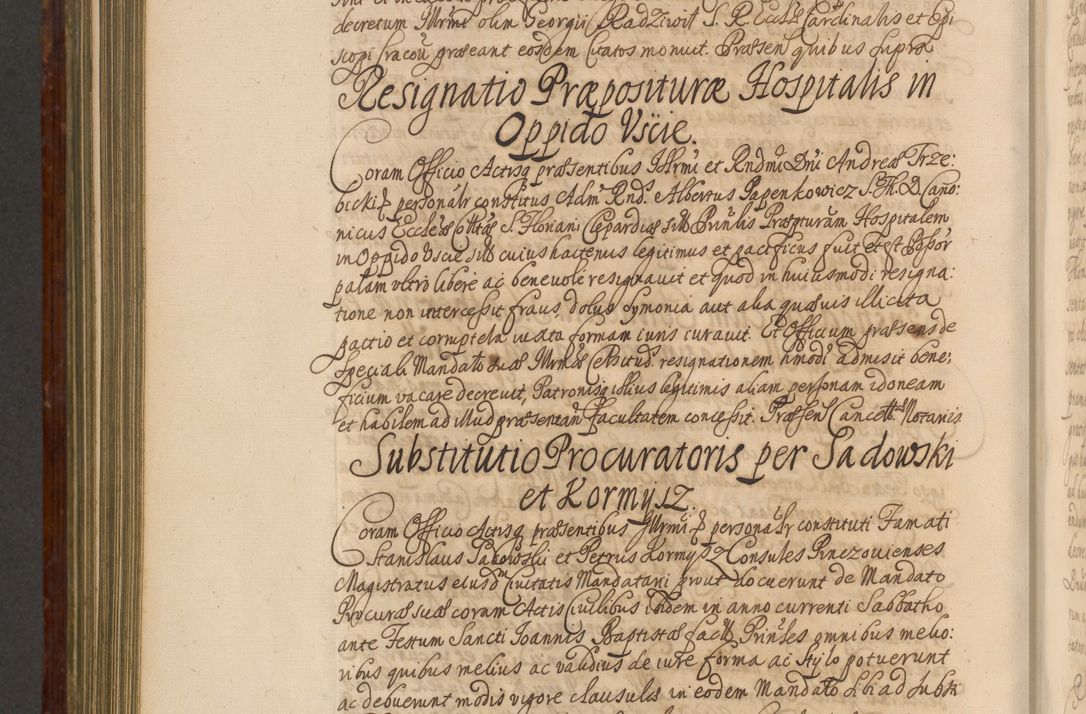 decretum Illrmi olim Georgii Radziwił S. R. Eccl&æ Cardinalis et Epi
scopi Cracoū præeant eosdem Citatos monuit. Præsen quibus supra
Resignatio Præposituræ Hospitalis in
Oppido Uście.
Coram Officio Actisq præsentibus Illrmi et Rndmi Dni Andreæ Trze:
bicki personālr constitus Adm Rnds Albertus Papenkowicz S. Th. D. Cano:
nicus Ecclæ Colltæ S. Floriani Clepardiæ sub Prinlis Præpturam Hospitalem
in Oppido Uscie sub cuius hactenus legitimus et pacificus fuit et est Possor
palam ultro libere ac benevole resignavit et quod in huiusmodi resigna:
tione non intercessit fraus, dolus symonia aut alia quævis illicita
pactio et corruptela iuxta formam iuris iuravit. Et Officium præsens de
speciali Mandato suæ Illrmæ Celsitud. resignationem hmodi admisit bene:
ficium vacare decrevit, Patronisq illius legitimis aliam personam idoneam
et habilem ad illud præsentan facultatem concessit. Præsen Cancell. Notariis
Substitutio Procuratoris per Sadowski
et Kormysz.
Coram Officio Actisq præsentibus Illrmi personālr constituti Famati
Stanislaus Sadowski et Petrus Kormysz Consules Pinczovienses
Magistratus eiusdm Civitatis Mandatarii prout docuerunt de Mandato
Procuræ suæ coram Actis Civilibus ibidem in anno currenti Sabbatho
ante Festum Sancti Ioannis Baptistæ facto Prinles omnibus melio:
ribus quibus melius ac validius de iure forma ac stylo potuerunt
ac debuerunt modis vigore clausulæ in eodem Mandato sibi ad substi